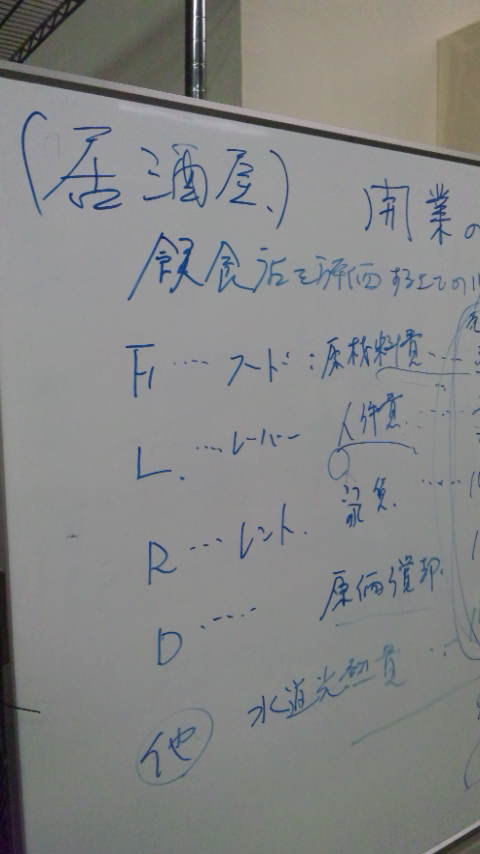 (居酒屋、) 開業の
飲食店を評価する上での
F, …… フード：原材料費 ……
L. …レーバー 人件費 ……
R … レント. 家賃. ……
D …… 原価償却.
他 水道光熱費 …